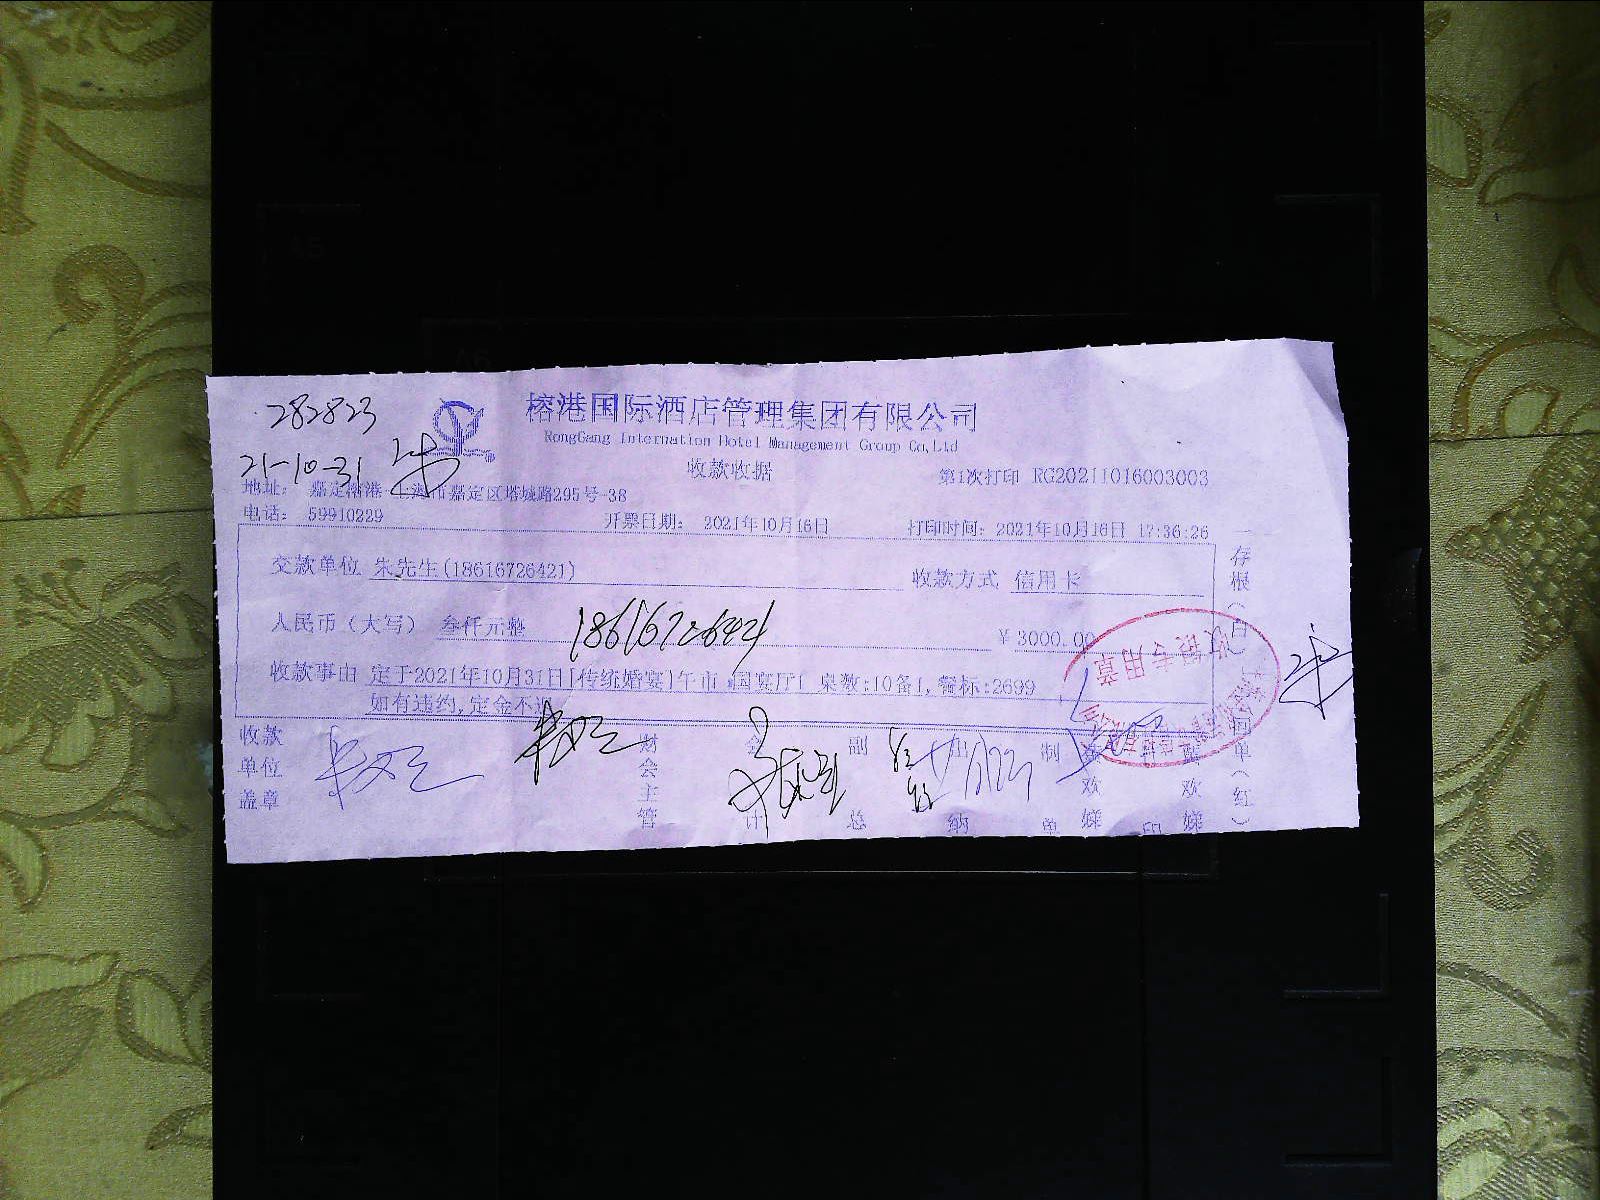 282823
榕港国际酒店管理集团有限公司
RongGang Internation Hotel Management Group Co,Ltd
21-10-31
收款收据
第1次打印 RG20211016003003
地址: 嘉定榕港 上海市嘉定区塔城路295号-38
电话: 59910229 开票日期: 2021年10月16日 打印时间: 2021年10月16日 17:36:26
交款单位 朱先生(18616726421) 收款方式 信用卡
人民币(大写) 叁仟元整 18616726421 ¥ 3000.00
收款事由 定于2021年10月31日[传统婚宴]午市,国宴厅1 桌数:10备1,餐标:2699
如有违约,定金不退
收款单位盖章
财会主管
会计
副总
出纳
制单
盛欢娣
打印
盛欢娣
一存根(白)
回单(红)
收银专用章